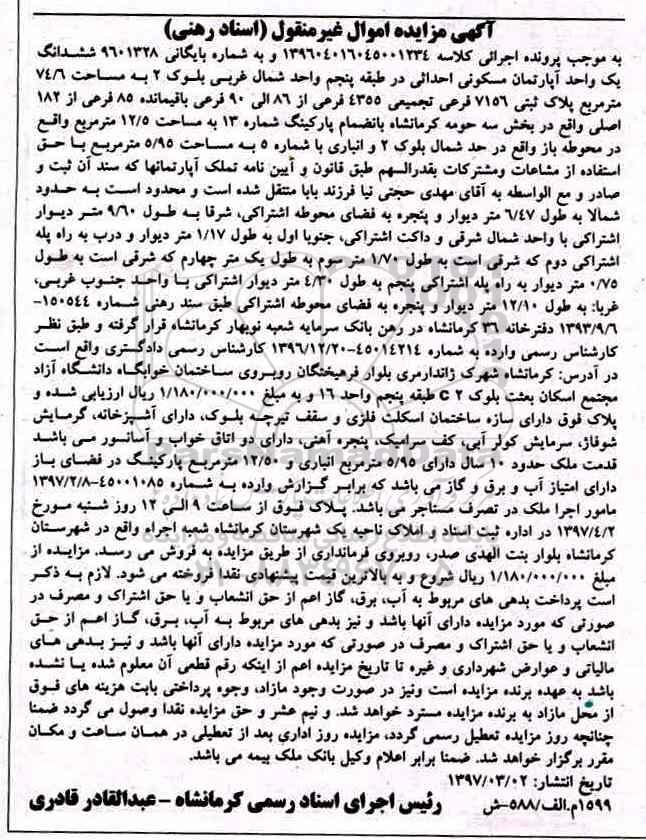 آگهی مزایده اموال غیرمنقول (اسناد رهنی)
به موجب پرونده اجرائی کلاسه ۱۳۹۶۰۴۰۱۶۰۴۵۰۰۱۲۳۴ و به شماره بایگانی ۹۶۰۱۳۲۸ ششدانگ
یک واحد آپارتمان مسکونی احداثی در طبقه پنجم واحد شمال غربی بلوک ۲ به مساحت ۷۴/۶
مترمربع پلاک ثبتی ۷۱۵۶ فرعی تجمیعی ۴۳۵۵ فرعی از ۸۶ الی ۹۰ فرعی باقیمانده ۸۵ فرعی از ۱۸۲
اصلی واقع در بخش سه حومه کرمانشاه بانضمام پارکینگ شماره ۱۳ به مساحت ۱۲/۵ مترمربع واقع
در محوطه باز واقع در حد شمال بلوک ۲ و انباری با شماره ۵ به مساحت ۵/۹۵ مترمربع با حق
استفاده از مشاعات ومشترکات بقدرالسهم طبق قانون و آیین نامه تملک آپارتمانها که سند آن ثبت و
صادر و مع الواسطه به آقای مهدی حجتی نیا فرزند بابا منتقل شده است و محدود است به حدود
شمالا به طول ۶/۴۷ متر دیوار و پنجره به فضای محوطه اشتراکی، شرقا به طول ۹/۶۰ متر دیوار
اشتراکی با واحد شمال شرقی و داکت اشتراکی، جنوبا اول به طول ۱/۱۷ متر دیوار و درب به راه پله
اشتراکی دوم که شرقی است به طول ۱/۷۰ متر سوم به طول یک متر چهارم که شرقی است به طول
۰/۷۵ متر دیوار به راه پله اشتراکی پنجم به طول ۴/۳۰ متر دیوار اشتراکی با واحد جنوب غربی،
غربا: به طول ۱۲/۱۰ متر دیوار و پنجره به فضای محوطه اشتراکی طبق سند رهنی شماره ۱۵۰۵۴۴-
۱۳۹۳/۹/۶ دفترخانه ۳۶ کرمانشاه در رهن بانک سرمایه شعبه نوبهار کرمانشاه قرار گرفته و طبق نظر
کارشناس رسمی وارده به شماره ۴۵۰۱۴۲۱۴-۱۳۹۶/۱۲/۲۰ کارشناس رسمی دادگستری واقع است
در آدرس: کرمانشاه شهرک ژاندارمری بلوار فرهیختگان روبروی ساختمان خوابگاه دانشگاه آزاد
مجتمع اسکان بعثت بلوک C ۲ طبقه پنجم واحد ۱۶ و به مبلغ ۱/۱۸۰/۰۰۰/۰۰۰ ریال ارزیابی شده و
پلاک فوق دارای سازه ساختمان اسکلت فلزی و سقف تیرچه بلوک، دارای آشپزخانه، گرمایش
شوفاژ، سرمایش کولر آبی، کف سرامیک، پنجره آهنی، دارای دو اتاق خواب و آسانور می باشد
قدمت ملک حدود ۱۰ سال دارای ۵/۹۵ مترمربع انباری و ۱۲/۵۰ مترمربع پارکینگ در فضای باز
دارای امتیاز آب و برق و گاز می باشد که برابر گزارش وارده به شماره ۴۵۰۰۱۰۸۵-۱۳۹۷/۲/۸
مامور اجرا ملک در تصرف مستاجر می باشد. پلاک فوق از ساعت ۹ الی ۱۲ روز شنبه مورخ
۱۳۹۷/۴/۲ در اداره ثبت اسناد و املاک ناحیه یک شهرستان کرمانشاه شعبه اجراء واقع در شهرستان
کرمانشاه بلوار بنت الهدی صدر، روبروی فرمانداری از طریق مزایده به فروش می رسد. مزایده از
مبلغ ۱/۱۸۰/۰۰۰/۰۰۰ ریال شروع و به بالاترین قیمت پیشنهادی نقدا فروخته می شود. لازم به ذکر
است پرداخت بدهی های مربوط به آب، برق، گاز اعم از حق انشعاب و یا حق اشتراک و مصرف در
صورتی که مورد مزایده دارای آنها باشد و نیز بدهی های مربوط به آب، برق، گاز اعم از حق
انشعاب و یا حق اشتراک و مصرف در صورتی که مورد مزایده دارای آنها باشد و نیز بدهی های
مالیاتی و عوارض شهرداری و غیره تا تاریخ مزایده اعم از اینکه رقم قطعی آن معلوم شده یا نشده
باشد به عهده برنده مزایده است ونیز در صورت وجود مازاد، وجوه پرداختی بابت هزینه های فوق
از محل مازاد به برنده مزایده مسترد خواهد شد. و نیم عشر و حق مزایده نقدا وصول می گردد ضمنا
چنانچه روز مزایده تعطیل رسمی گردد، مزایده روز اداری بعد از تعطیلی در همان ساعت و مکان
مقرر برگزار خواهد شد. ضمنا برابر اعلام وکیل بانک ملک بیمه می باشد.
تاریخ انتشار: ۱۳۹۷/۰۳/۰۲
۱۵۹۹م.الف/۵۸۸-ش رئیس اجرای اسناد رسمی کرمانشاه - عبدالقادر قادری